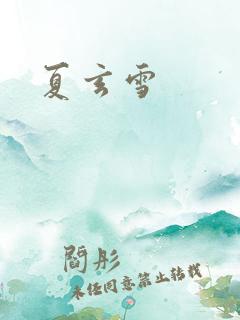 夏玄雪
閻彤
未经同意禁止转载